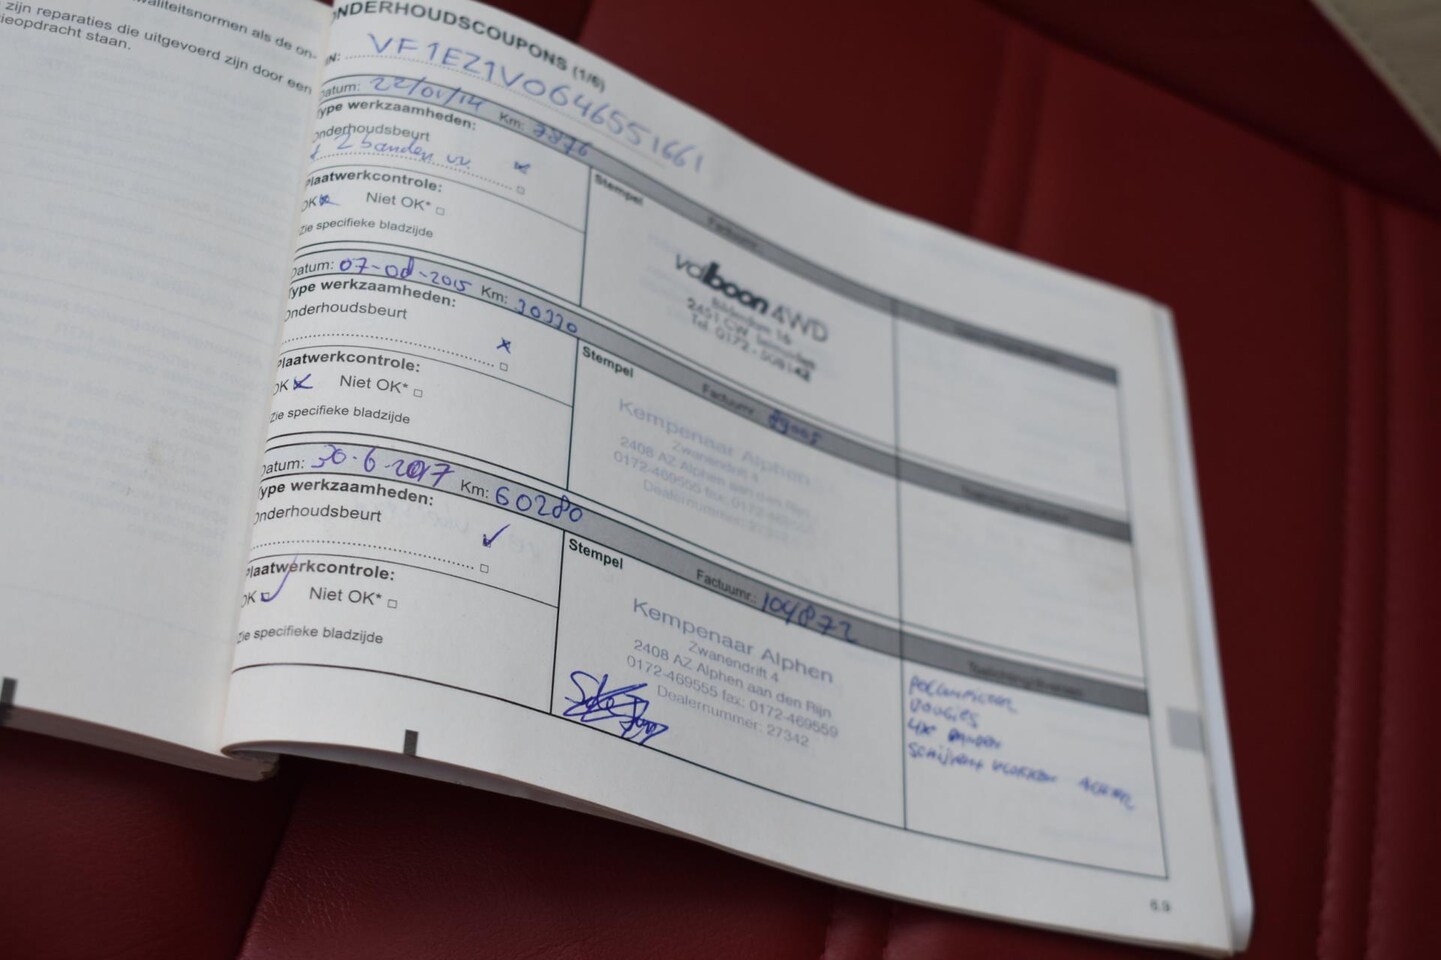 waliteitsnormen als de on-
zijn reparaties die uitgevoerd zijn door een
ieopdracht staan.
ONDERHOUDSCOUPONS (1/6)
IN: VF1EZ1V0646551661
Datum: 22/01/14 Km: 7876
Type werkzaamheden:
Onderhoudsbeurt
2 banden vv
Plaatwerkcontrole:
OK Niet OK*
Zie specifieke bladzijde
Stempel
valboon 4WD
2451 CW
Tel. 0172-508142
Datum: 07-0d-2015 Km: 30330
Type werkzaamheden:
Onderhoudsbeurt
Plaatwerkcontrole:
OK Niet OK*
Zie specifieke bladzijde
Stempel Factuurnr.: 89005
Kempenaar Alphen
Zwanendrift 4
2408 AZ Alphen aan den Rijn
0172-469555 fax: 0172
Dealernummer:
Datum: 30-6-2017 Km: 60280
Type werkzaamheden:
Onderhoudsbeurt
Plaatwerkcontrole:
OK Niet OK*
Zie specifieke bladzijde
Stempel Factuurnr.: 104872
Kempenaar Alphen
Zwanendrift 4
2408 AZ Alphen aan den Rijn
0172-469555 fax: 0172-469559
Dealernummer: 27342
POLLENFILTER
BOUGIES
4x BANDEN
SCHIJVEN BLOKKEN ACHTER
6.9